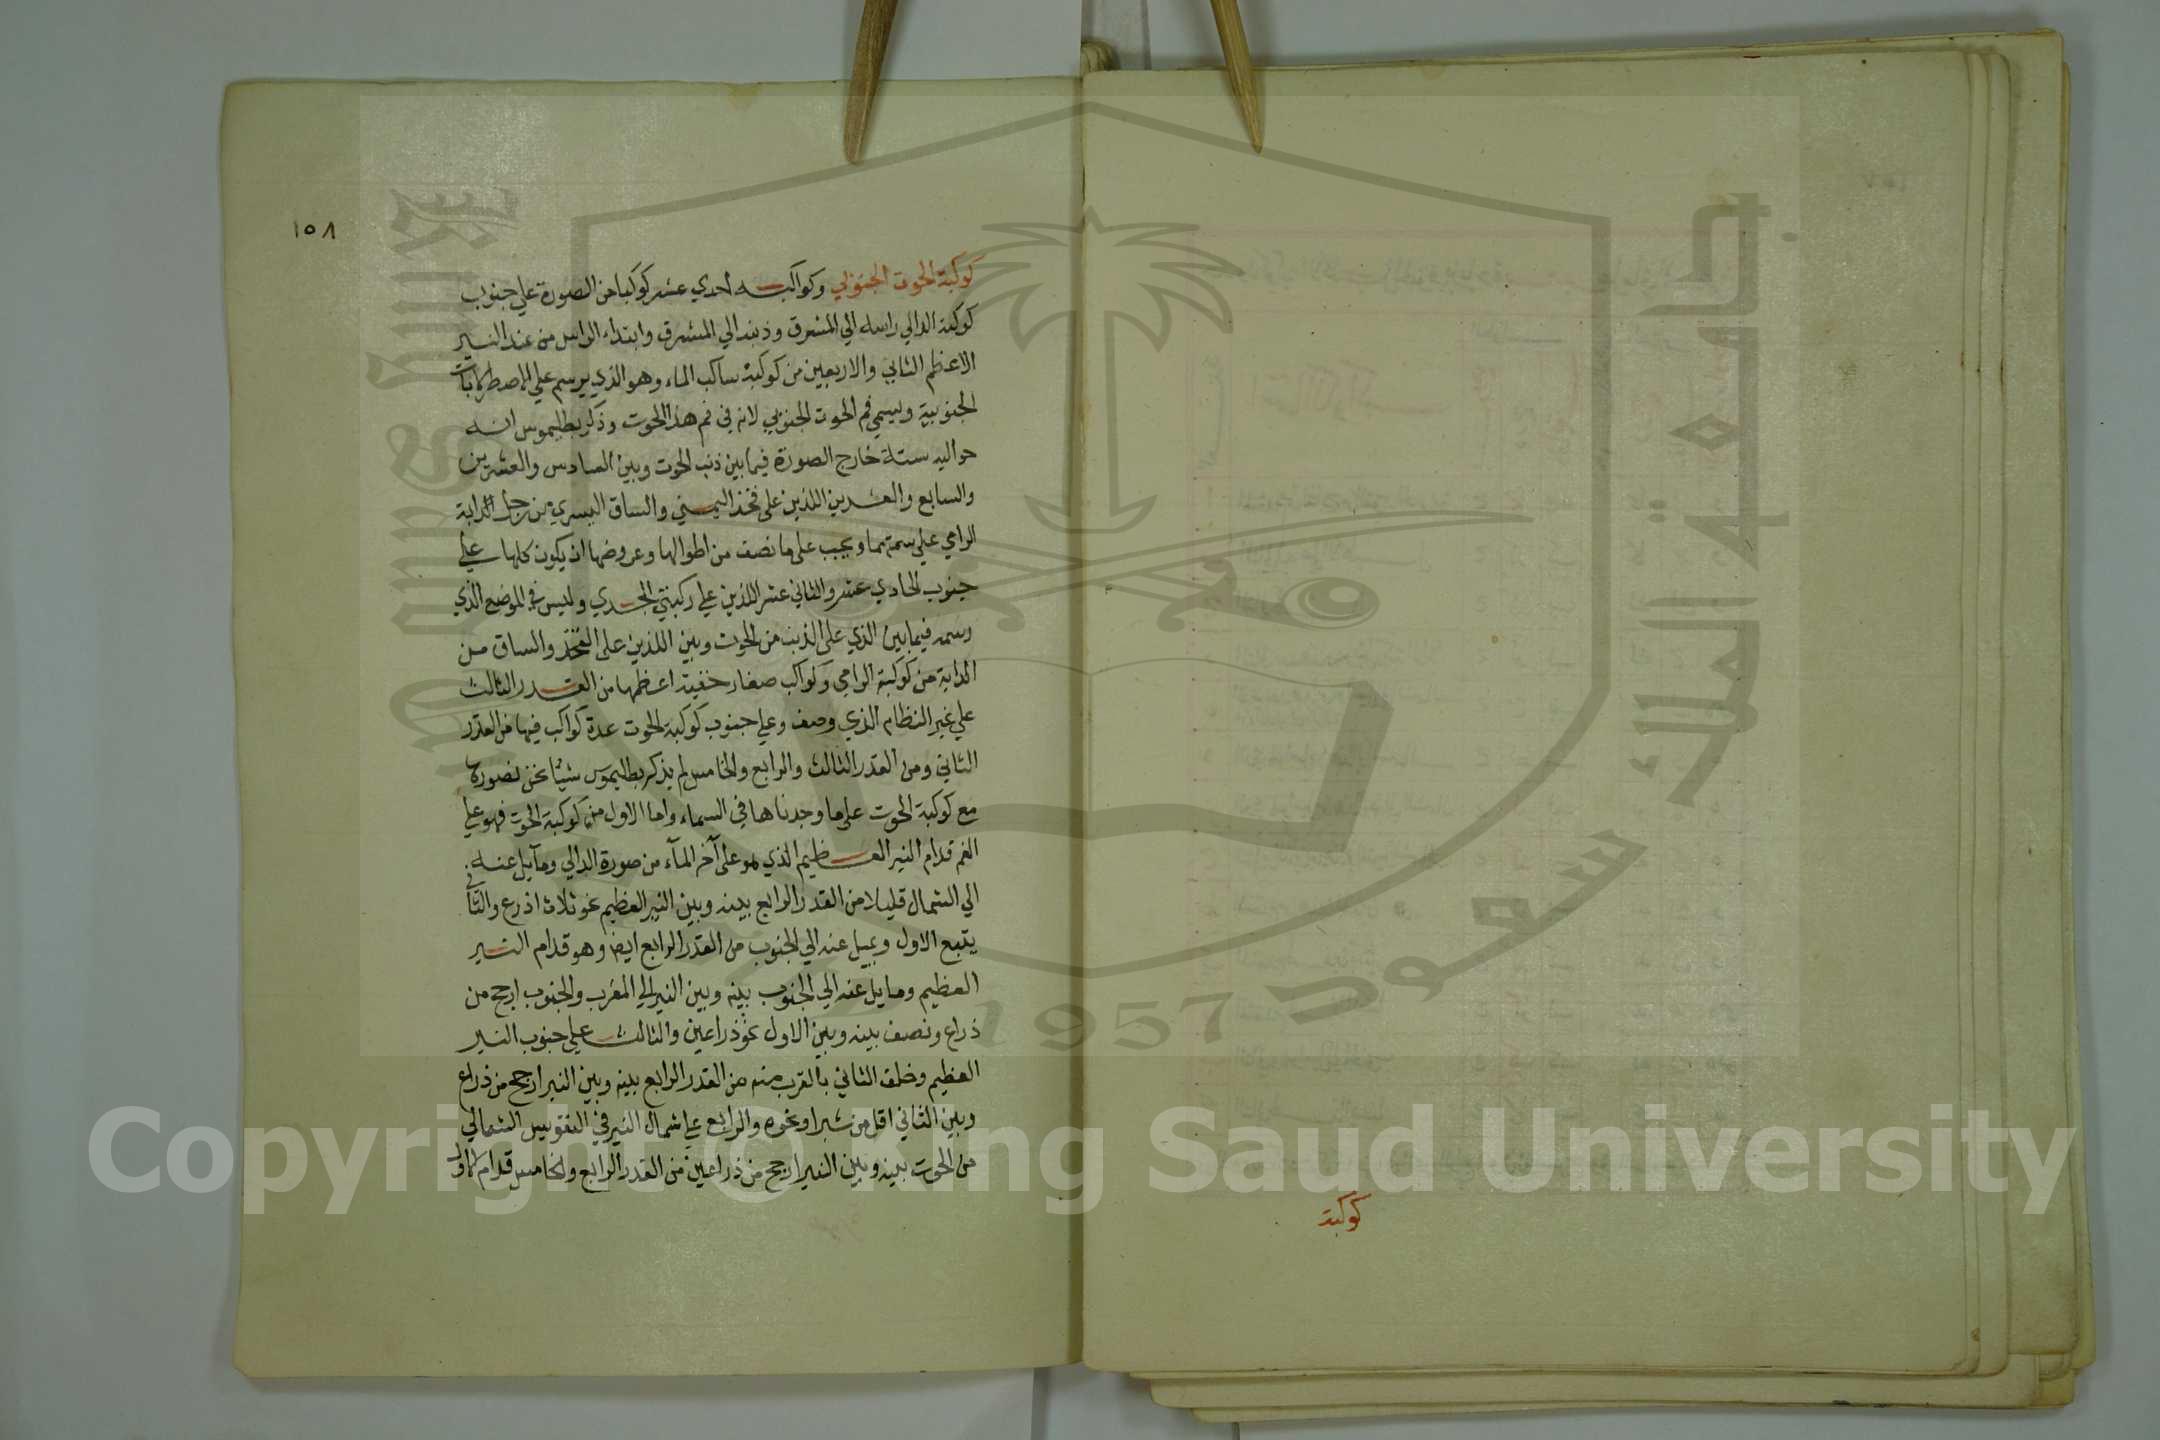 كوكبة
١٥٨
كوكبة الحوت الجنوبي وكواكبه احدي عشر كوكبا من الصورة علي جنوب
كوكبة الدالي راسه الي المشرق وذنبه الي المشرق وابتداء الراس من عند النير
الاعظم الثاني والاربعين من كوكبة ساكب الماء وهو الذي يرسم علي الاصطرلابات
الجنوبية ويسمي فم الحوت الجنوبي لانه في فم هذا الحوت وذكر بطليموس انه
حواليه ستة خارج الصورة فيما بين ذنب الحوت وبين السادس والعشرين
والسابع والعشرين اللذين على فخذ اليمني والساق اليسري من رجل الدابة
الرامي علي سمتهما ويجب على ما نصف من اطوالها وعروضها ان يكون كلها علي
جنوب الحادي عشر والثاني عشر اللذين علي ركبتي الجدي وليس في الموضع الذي
وسمه فيما بين الذي على الذنب من الحوت وبين اللذين على الفخذ والساق من
الدابة من كوكبة الرامي وكواكب صغار خفية اعظمها من القدر الثالث
علي غير النظام الذي وصف وعلي جنوب كوكبة الحوت عدة كواكب فيها من القدر
الثاني ومن القدر الثالث والرابع والخامس لم يذكر بطليموس شيئا نحن نصوره
مع كوكبة الحوت على ما وجدناها في السماء واما الاول من كوكبة الحوت فهو علي
الفم قدام النير العظيم الذي هو على آخر المآء من صورة الدالي ومآيل عنه
الي الشمال قليلا من القدر الرابع بينه وبين النير العظيم نحو ثلاث اذرع والثاني
يتبع الاول ويميل عنه الي الجنوب من القدر الرابع ايضا وهو قدام النير
العظيم ومايل عنه الي الجنوب بينه وبين النير الي المغرب والجنوب ارجح من
ذراع ونصف بينه وبين الاول نحو ذراعين والثالث علي جنوب النير
العظيم وخلف الثاني بالقرب منه من القدر الرابع بينه وبين النير ارجح من ذراع
وبين الثاني اقل من شبر او نحوه والرابع علي شمال النير في التقويس الشمالي
من الحوت بينه وبين النير ارجح من ذراعين من القدر الرابع والخامس قدام الاول
جامعة الملك سعود
1957
Copyright © King Saud University